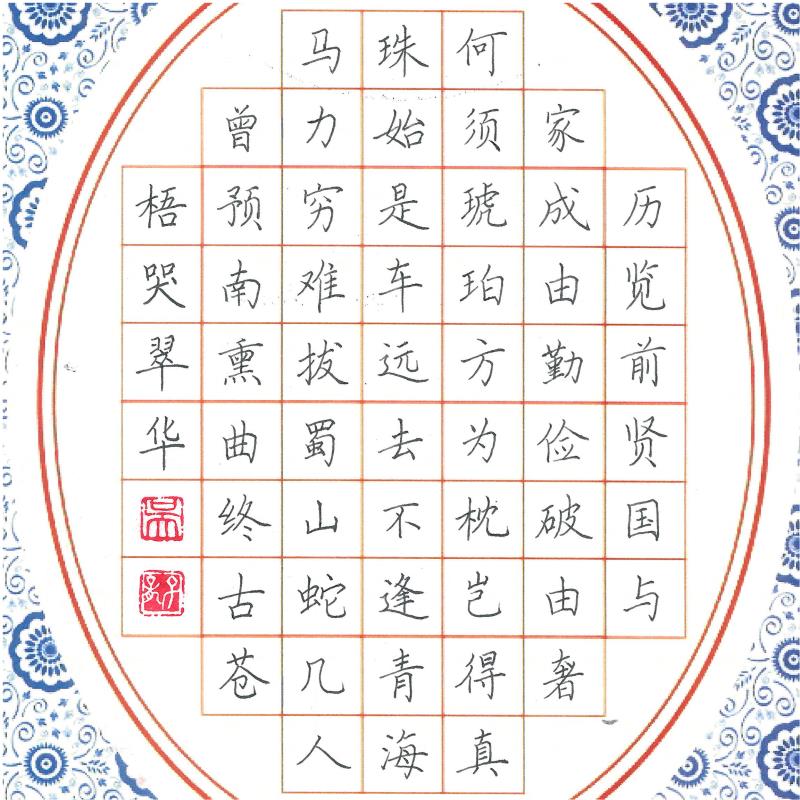 历览前贤国与
家成由勤俭破由奢
何须琥珀方为枕岂得真
珠始是车远去不逢青海
马力穷难拔蜀山蛇几人
曾预南熏曲终古苍
梧哭翠华